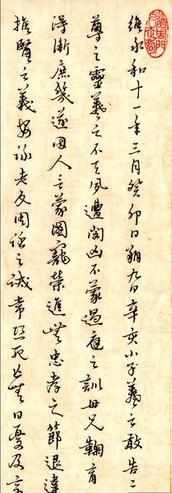 維永和十一年三月癸卯日朔九日辛亥小子羲之敢告二
尊之靈羲之不天夙遭閔凶不蒙過庭之訓母兄鞠育
得漸庶幾遂因人乏蒙國寵榮進無忠孝之節退違
推賢之義每詠老氏周任之誡常恐死亡無日憂及宗